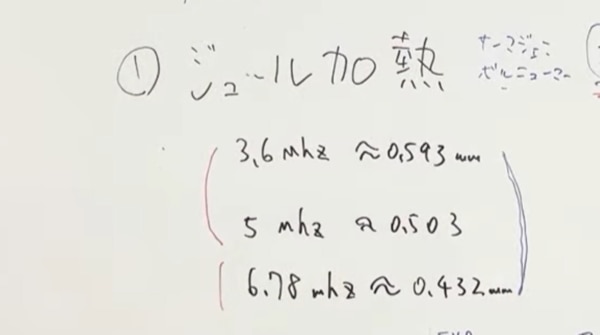 ① ジュール加熱
サーマジェン
ボルニューマー
3.6 mhz ≈ 0.593 mm
5 mhz ≈ 0.503
6.78 mhz ≈ 0.432 mm